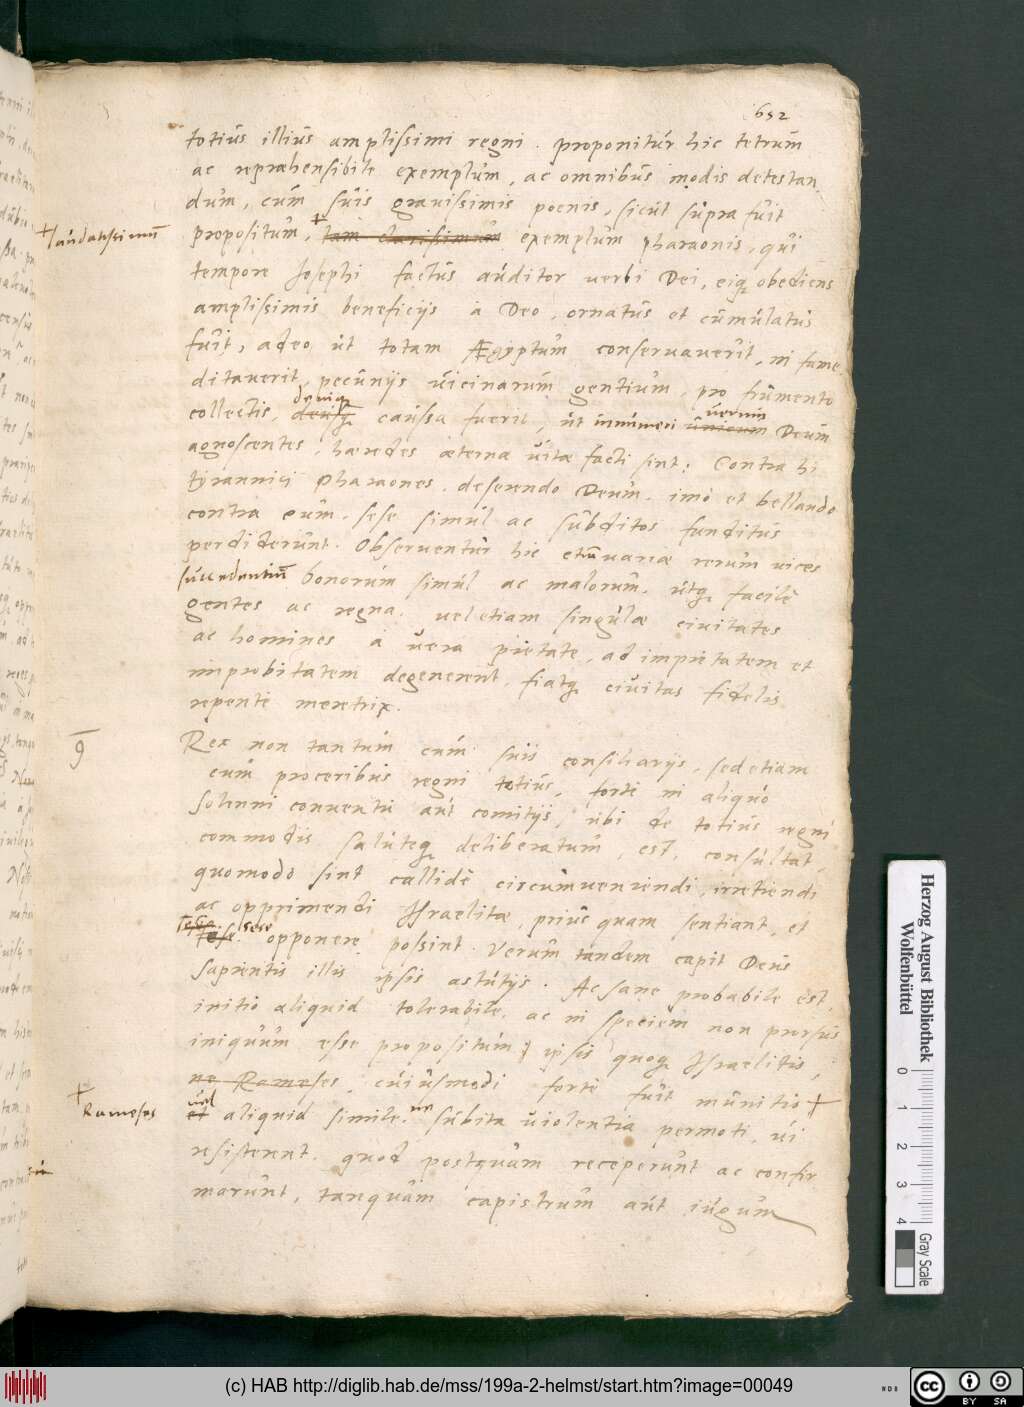 652
totius illius amplissimi regni. proponitur hic tetrum
ac repræhensibile exemplum, ac omnibus modis detestan
dum, cum suis grauissimis poenis, sicut supra fuit
+laudatissimum
propositum, + tam clarissimum exemplum Pharaonis, qui
tempore Josephi factus auditor verbi Dei, eiq; obediens
amplissimis beneficijs à Deo, ornatus et cumulatus
fuit, adeo ut totam Ægyptum conseruauerit, in fame,
ditauerit, pecunijs uicinarum gentium, pro frumento
deniq;
collectis, causa fuerit, ut innumeri unicum Deum
uerum
agnoscentes, hæredes æternæ vitæ facti sint: Contra hi
tyrannici Pharaones, deserendo Deum, imò et bellando
contra eum, sese simul ac subditos funditus
perdiderunt. Obseruentur hic etiam variæ rerum vices
succedentium bonorum simul ac malorum, utq; facilè
gentes ac regna, vel etiam singulæ ciuitates
ac homines à vera pietate, ad impietatem et
improbitatem degenerent, fiatq; ciuitas fidelis
repente meretrix.
9
Rex non tantum cum suis consiliarijs, sed etiam
cum proceribus regni totius, fortè in aliquo
solenni conuentu aut comitijs, ubi de totius regni
commodis saluteq; deliberatum, est, consultat,
quomodo sint callidè circumueniendi, irretiendi
ac opprimendi Israelitæ, prius quam sentiant, et
sese opponere possint. Verum tandem capit Deus
sapientis illis ipsis astutijs. Ac sane probabile est,
initio aliquid tolerabile, ac in speciem non prorsus
iniquum esse propositum ipsis quoq; Israelitis,
ne Rameses, cuiusmodi fortè fuit munitio +
+ Rameses
uel
et aliquid simile. ne subita violentia permoti, ui
resisterent. quod postquam receperunt ac confir
marunt, tanquam capistrum aut iugum
Herzog August Bibliothek
Wolfenbüttel
0 1 2 3 4
Gray Scale
(c) HAB http://diglib.hab.de/mss/199a-2-helmst/start.htm?image=00049
cc BY SA